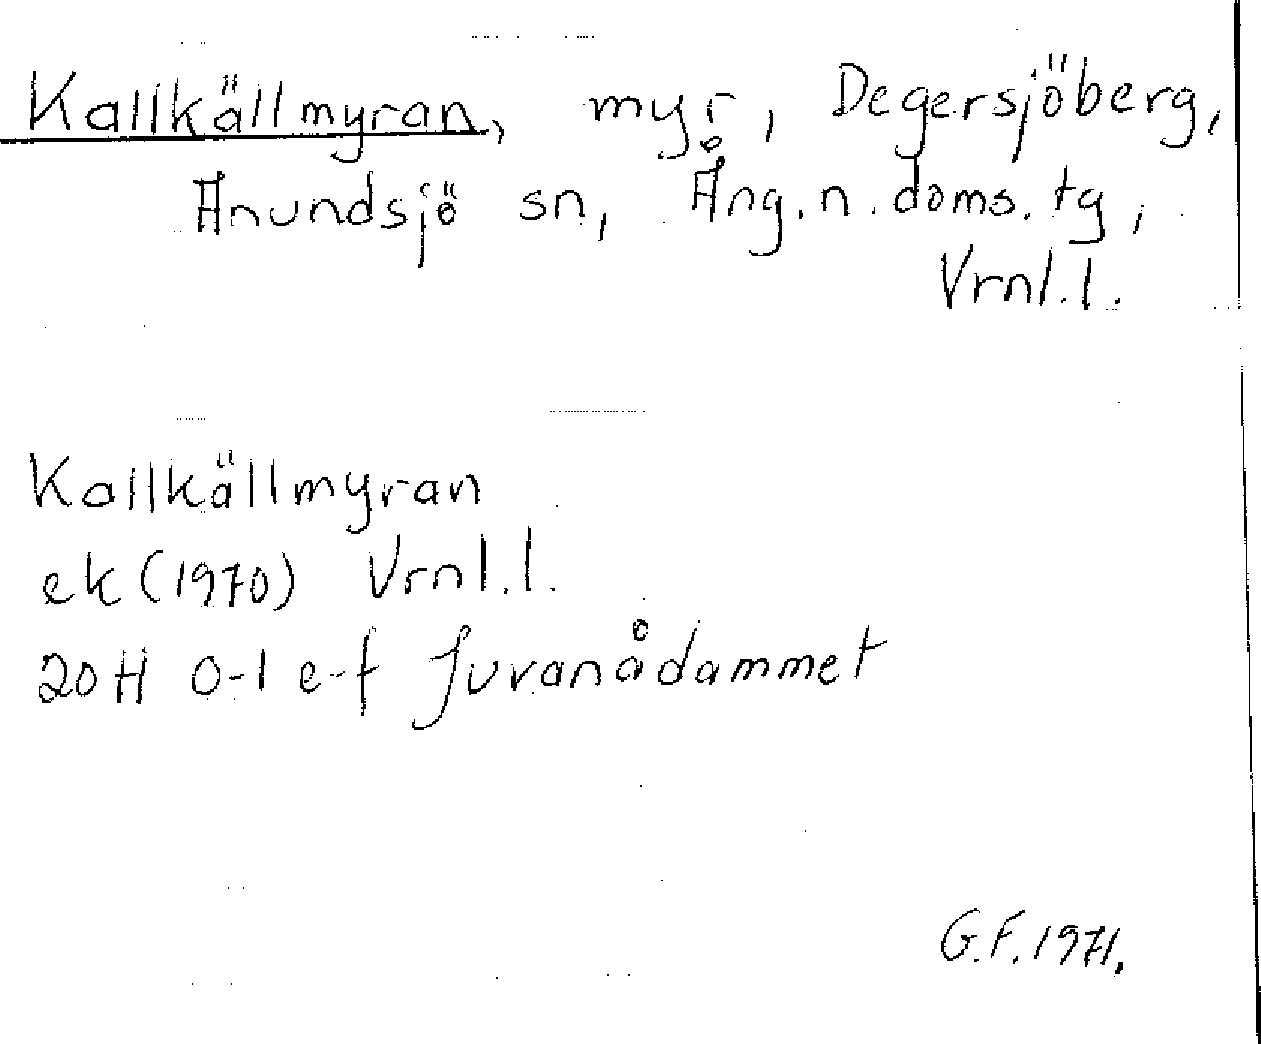 Kallkällmyran, myr, Degersjöberg,
Anundsjö sn, Ång.n.doms.tg,
Vrnl.l.
Kallkällmyran
ek (1970) Vrnl.l.
20H 0-1 e-f Juvanådammet
G.F.1971.